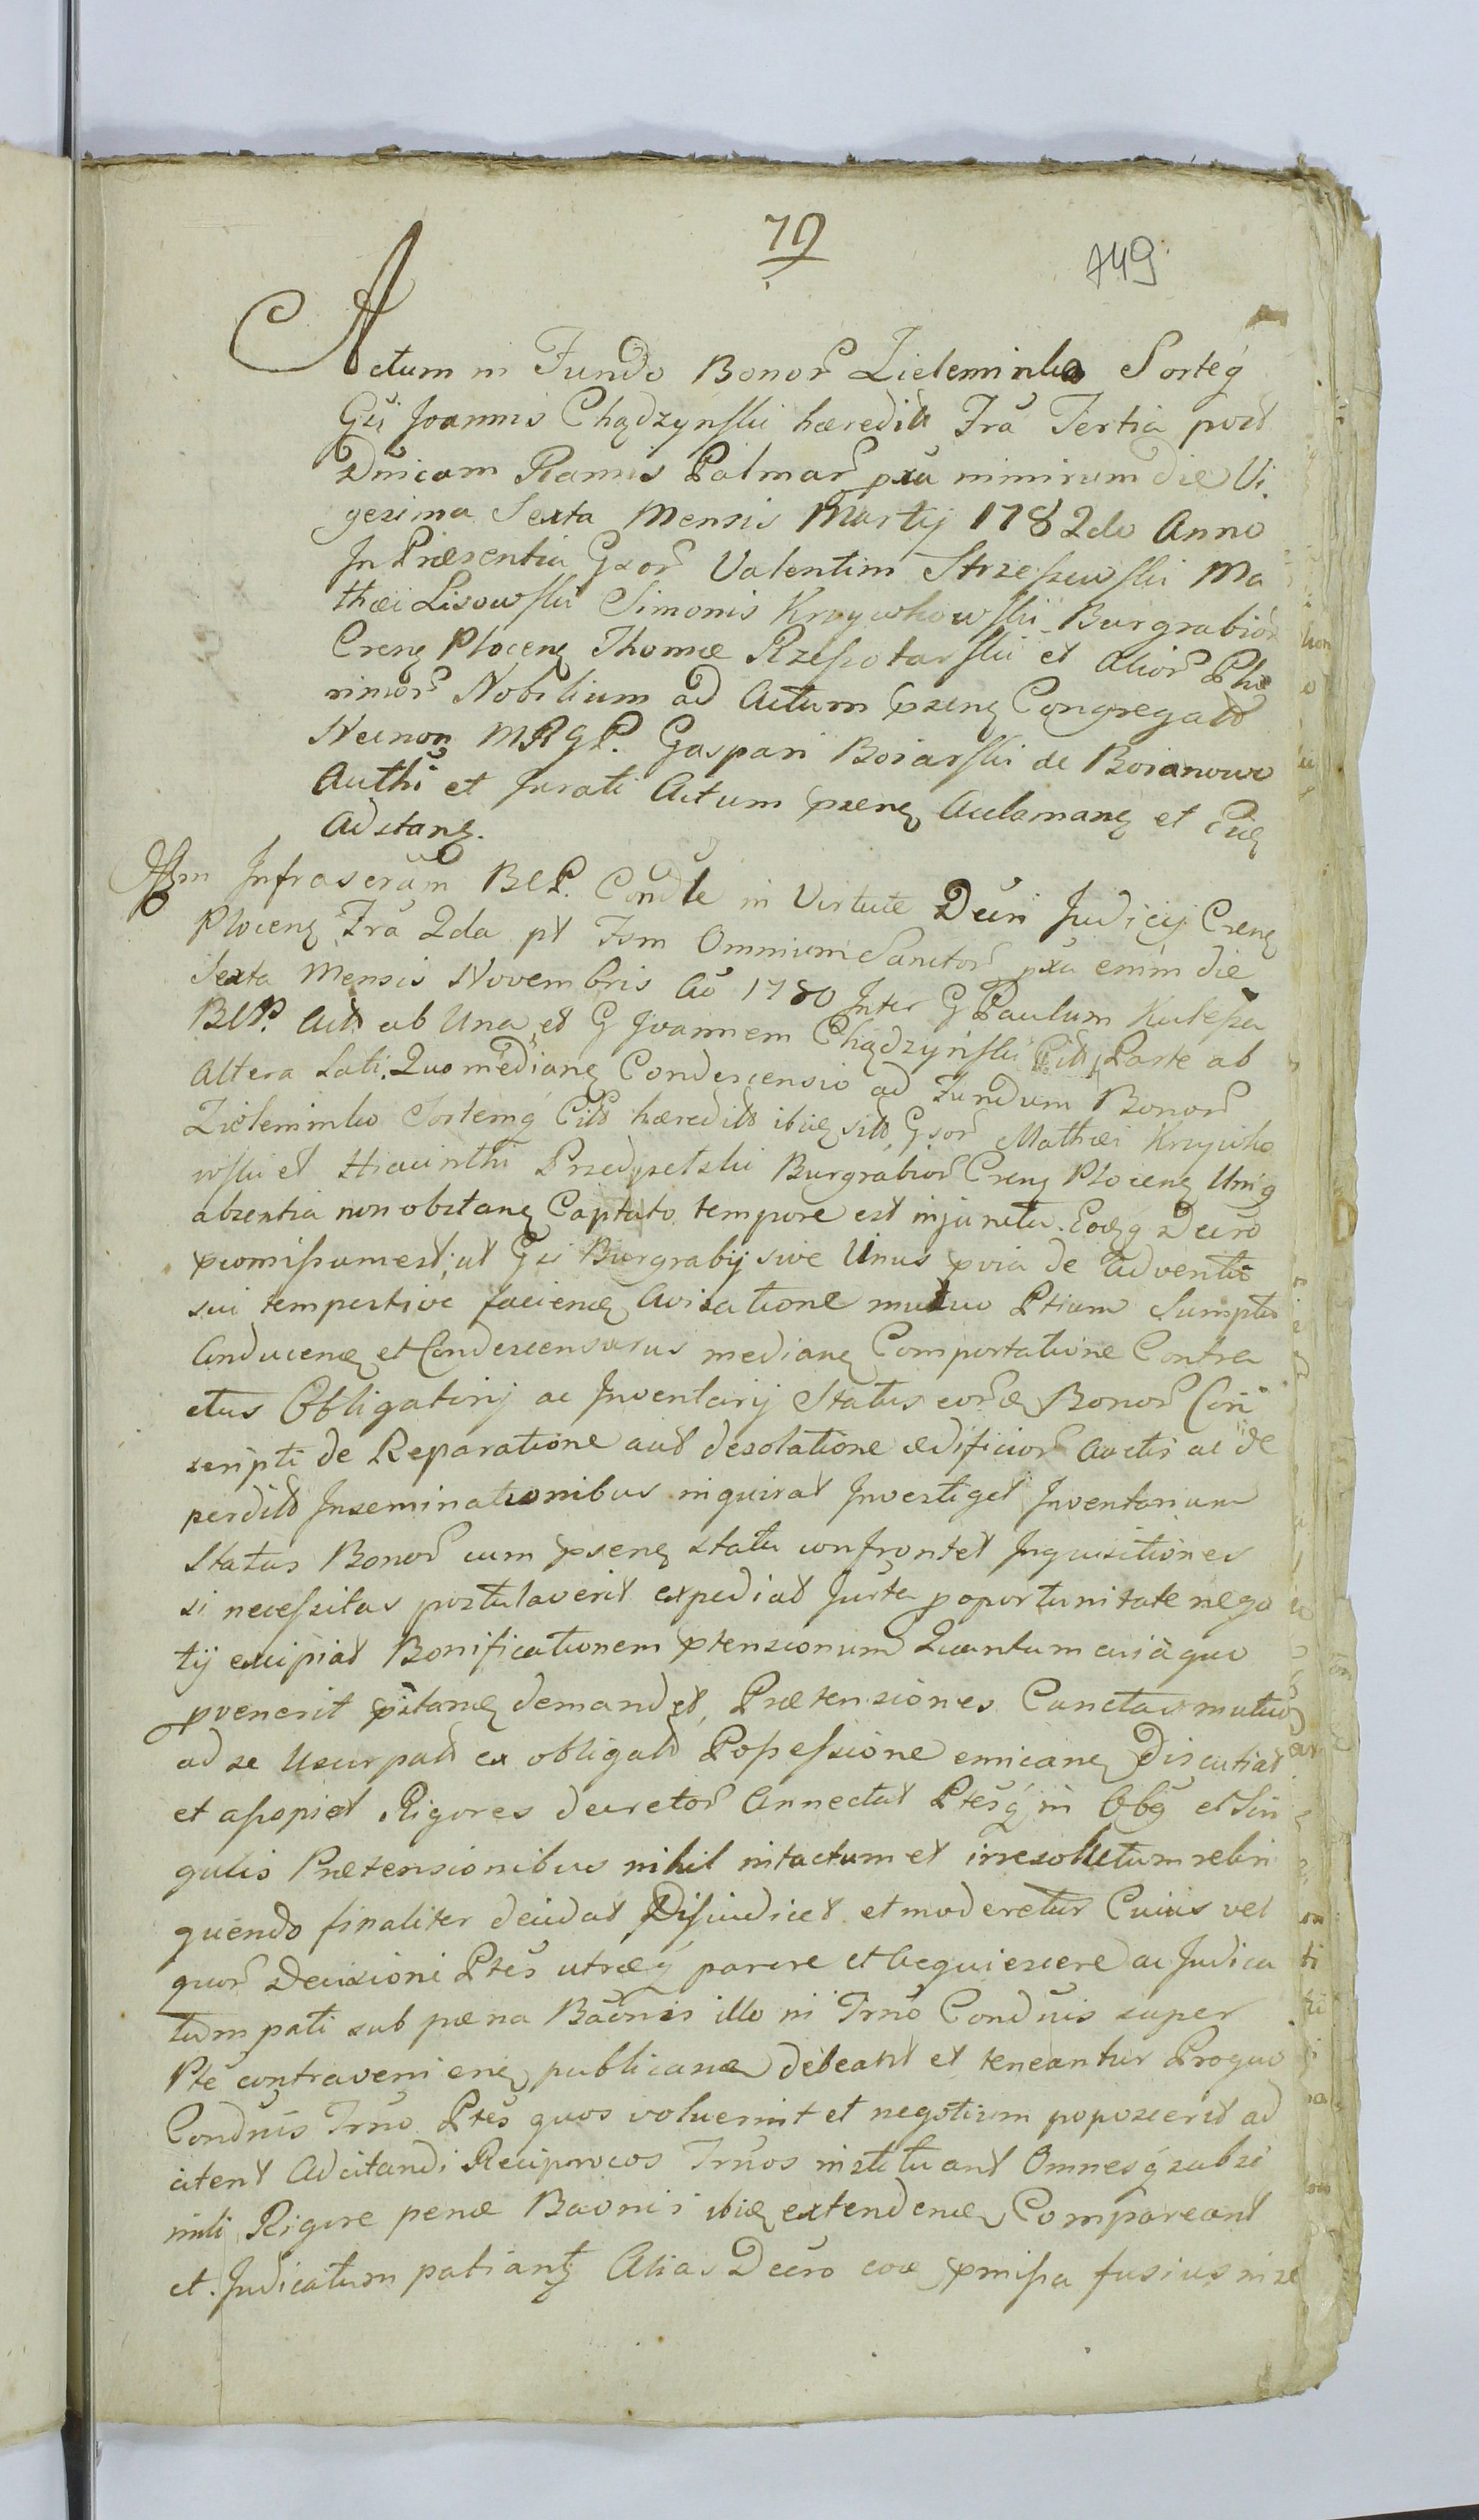 79
749
Actum in Fundo Bonor Zieleminko Sorteq
Gsi Joannis Chądzynski hæredit Fra Tertia post
Dnicam Ramis Palmar pxa nimirum die Vi
gesima Sexta Mensis Martij 1782do Anno
In Præsentia Gsor Valentini Strzeszewski Ma
thæi Lisowski Simonis Krzywkowski Burgrabior
Crens Plocens Thomæ Rzeszotarski et alior Plu
rimor Nobilium ad Actum psens Congregatt
Necnon MRGP. Gaspari Boiarski de Boianowo
Authi et Jurati Actum psens Acclamans et
Adstans.
Infrascrum BCP. Condle in Virtute Decri Judicij Crens
Plocens Fra 2da pt Fsm Omnium Sanctor pxa enim die
Sexta Mensis Novembris Ao 1780 Inter G Paulum Kulesza
BCP. Act ab Una et G Joannem Chądzynski Citt Parte ab
Altera Lati. Quo medians Condescensio ad Fundum Bonor
Zieleminko Sortemq Citt hæreditt ibid sitt Gsor Mathæi Krzywko
wski et Hiacinthi Przedpełski Burgrabior Crens Plocens Uniq
absentia non obstans Captato tempore est injuncta. Eodq Decro
promissum est, ut Gsi Burgrabij sive Unus pvia de adventu
sui tempestive faciend Avisatione mutuo Ptium Sumptu
Conducend et Condescensurus medians Comportatione Contra
ctus Obligatorij ac Inventarij Status eord Bonor Con
scripti de Reparatione aut desolatione ædificior Auctis ac de
perditt Inseminationibus inquirat Investiget Inventarium
Status Bonor cum psens statu confrontet Inquisitiones
si necessitas postulaverit expediat Jurta p oportunitate nego
tij excipiat Bonificationem ptensionum Quantum cui à quo
pvenerit pstand demandet, Prætensiones Cunctas mutuo
ad se Usurpatt ex obligatt Possessione emicans Discutiat
et assopiet Rigores decretor Annectat Ptesq in Obq et Sin
gulis Prætensionibus nihil intactum et irresolutum relin
quendo finaliter decidat Disiudicet et moderetur Cuius vel
quor Decisioni Ptes utræq parere et Acquiescere ac Judica
tum pati sub pæna Baonis illo in Trno Condnis super
Pte contraveniens publicand debeant et teneantur Proquo
Condnis Trno Ptes quos voluerint et negotium poposcerit ad
citent Adcitandi Reciprocos Trnos instituant Omnesq subsi
mili Rigore penæ Baonis ibid extendend Compareant
et Judicatum patiant Alias Decro eod pmissa fusius in se